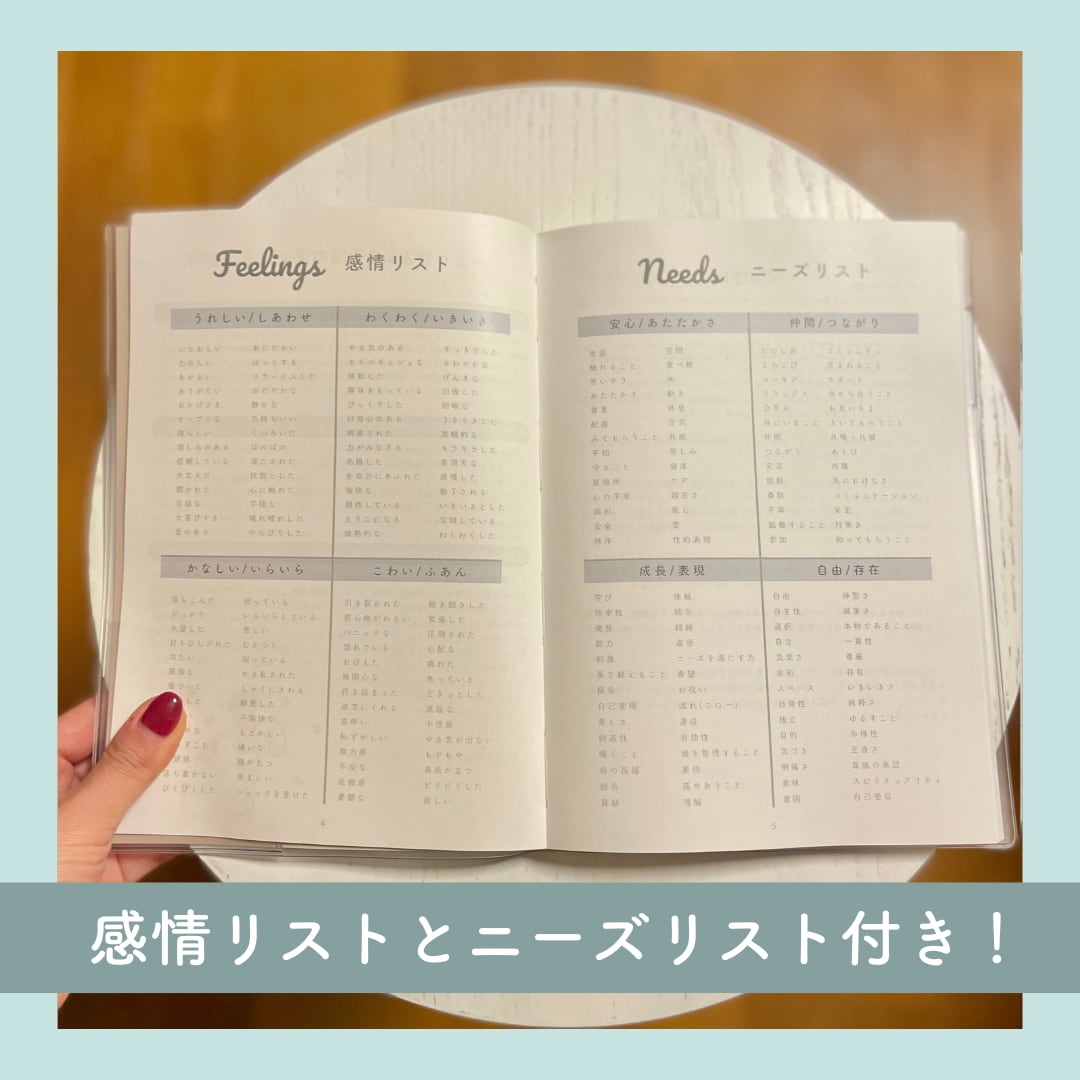 Feelings 感情リスト
うれしい/しあわせ
いとおしい あたたかい
たのしい ほっとする
あかるい リラックスした
ありがたい おだやかな
おかげさま 静かな
オープンな 気持ちいい
誇らしい くつろいだ
親しみのある ほのぼの
信頼している 満たされた
大丈夫だ
開かれた 心に触れた
至福な 平穏な
大喜びする 晴れ晴れした
愛のある のんびりした
わくわく/いきいき
やる気のある すっきりした
エネルギッシュな さわやかな
感動した げんきな
興味をもっている 回復した
びっくりした 明晰な
好奇心のある うきうきした
刺激された 楽観的な
力がみなぎる キラキラした
高揚した 有頂天な
生命力にあふれた 感嘆した
愉快な 魅了される
期待している いきいきとした
とりこになる 没頭している
情熱的な わくわくした
かなしい/いらいら
落ちこんだ 怒っている
がっかり いらいらしている
失望した 悲しい
打ちひしがれた むかつく
冷たい 困っている
孤独な かき乱された
傷ついた しゃくにさわる
した 緩悪した
不愉快な
もどかしい
嫌いな
腹がたつ
落ち着かない 羨ましい
びくびくした ショックを受けた
こわい/ふあん
引き裂かれた 飽き飽きした
居心地がわるい 緊張した
パニックな 圧倒された
恐れている 心配な
おびえた 疲れた
無関心な 焦っている
行き詰まった どきっとした
途方にくれる 退屈な
歯痒い 不信感
恥ずかしい やる気が出ない
無力感 もやもや
不安な 鳥肌が立つ
危機感 ピリピリした
憂鬱な 寂しい
4
Needs ニーズリスト
安心/あたたかさ
受容 空間
触れること 食べ物
思いやり 水
あたたかさ 動き
尊重 休息
配慮 空気
みてもらうこと 共感
平和 慈しみ
守ること 健康
居場所 ケア
心の平安 親密さ
調和 癒し
安全 愛
秩序 性的表現
仲間/つながり
たのしみ コミュニティ
よろこび 含まれること
ユーモア サポート
リラックス 分かち合うこと
公平さ お互いさま
共にいること きいてもらうこと
仲間 共鳴・共振
つながり あそび
交流 所属
信頼 気のおけなさ
尊敬 コミュニケーション
平等 安定
協働すること 対等さ
参加 知ってもらうこと
成長/表現
学び 挑戦
効率性 統合
発見 超越
能力 直感
刺激 ニーズを満たす力
乗り越えること 希望
探究 お祝い
自己実現 流れ(フロー)
楽しさ 達成
創造性 有効性
嘆くこと 頭を整理すること
命の祝福 表現
統合 高めあうこと
貢献 理解
自由/存在
自由 神聖さ
自主性 誠実さ
選択 本物であること
自立 一貫性
気楽さ 尊厳
余裕 存在
スペース いきいきさ
自発性 純粋さ
独立 ゆるすこと
目的 多様性
気づき 正直さ
明確さ 真価の承認
意味 スピリチュアリティ
意図 自己受容
5
感情リストとニーズリスト付き！